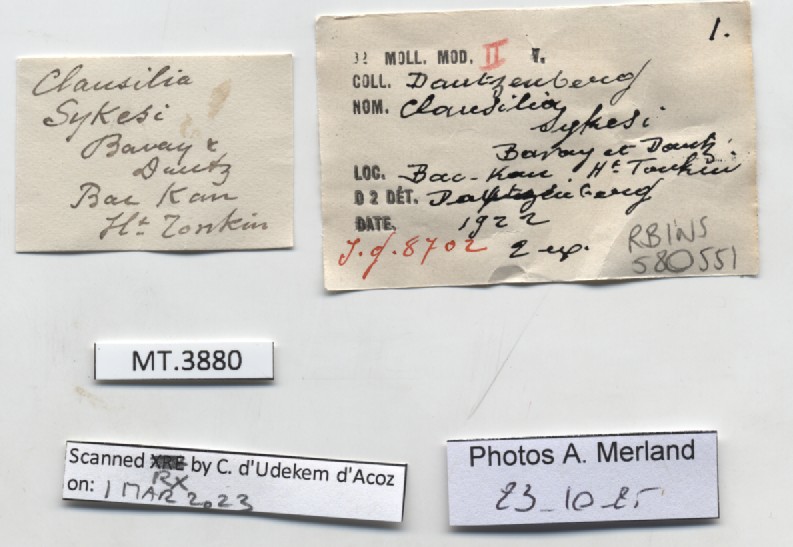 Clausilia
Sykesi
Bavay &
Dautz
Bac Kan
Ht Tonkin
1.
MOLL. MOD. II V.
COLL. Dautzenberg
NOM. Clausilia
Sykesi
Bavay et Dautz.
LOC. Bac-Kan Ht Tonkin
D 2 DÉT. Dautzenberg
DATE. 1922
I.g. 8702 2 ex.
RBINS
580551
MT.3880
Scanned XRE by C. d'Udekem d'Acoz
RX
on: 1 MAR 2023
Photos A. Merland
23-10-25